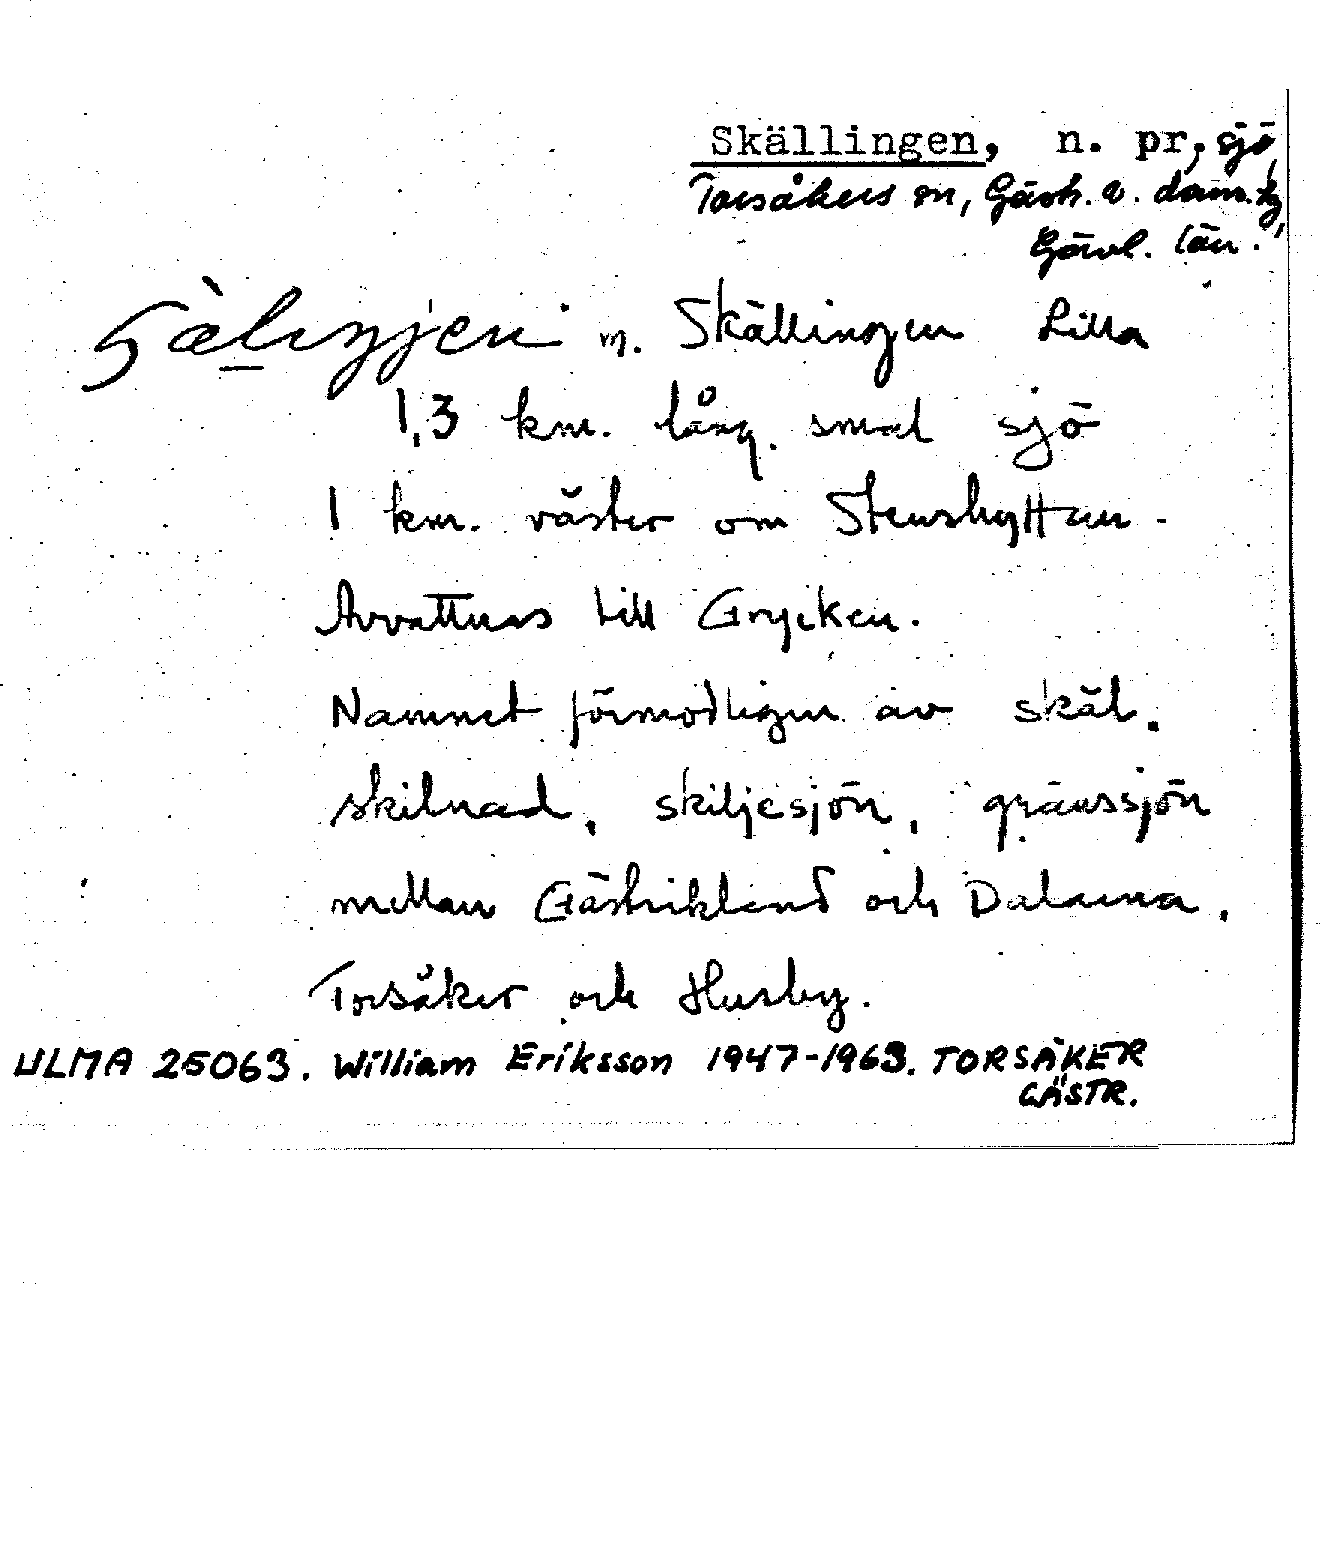 Skällingen, n. pr, sjö,
Torsåkers sn, Gästr. ö. doms.
Gävl. län.
m. Skällingen Lilla
1,3 km. lång. smal sjö
1 km. väster om Stenshyttan.
Avvattnas till Grycken.
Namnet förmodligen av skäl.
skilnad, skiljesjön, gränssjön
mellan Gästrikland och Dalarna,
Torsåker och Husby.
ULMA 25063. William Eriksson 1947-1963. TORSÅKER
GÄSTR.